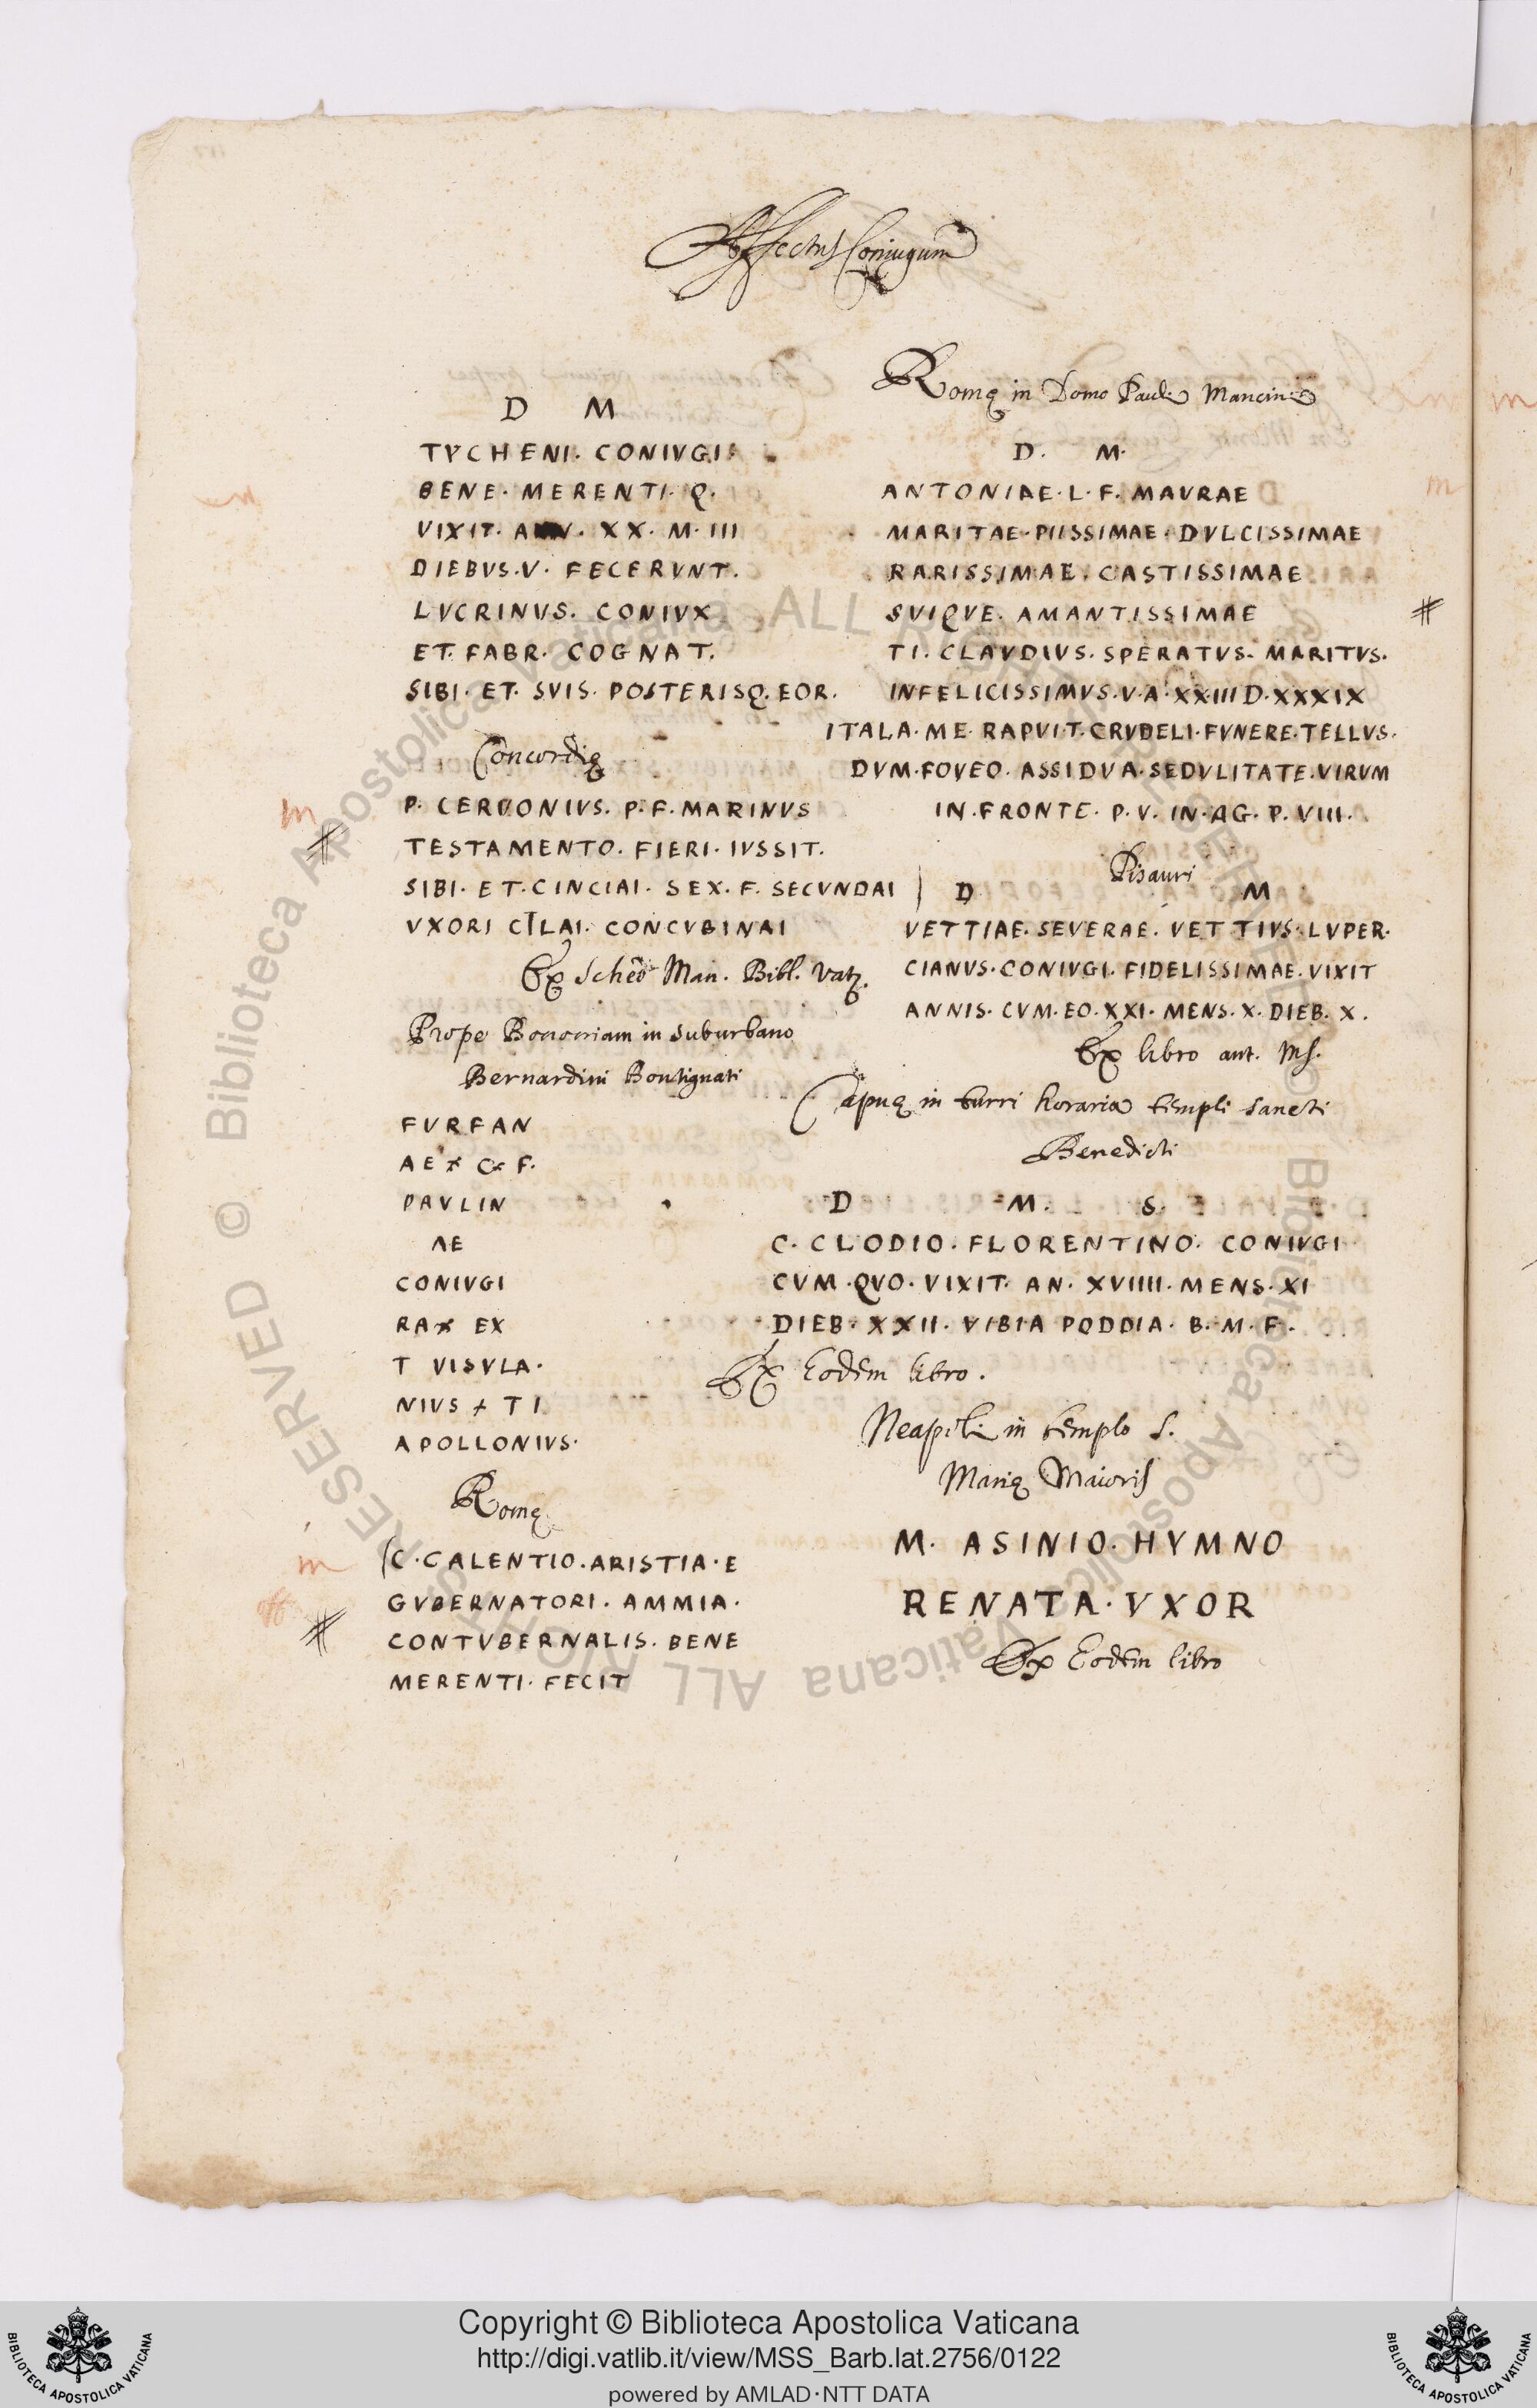 Affectus Coniugum
D M
TVCHENI. CONIVGI
BENE. MERENTI. Q.
VIXIT. ANN. XX. M. III
DIEBVS. V. FECERVNT.
LVCRINVS. CONIVX
ET. FABR. COGNAT.
SIBI. ET. SVIS. POSTERISQ. EOR.
Concordię
P. CERVONIVS. P. F. MARINVS
TESTAMENTO. FIERI. IVSSIT.
SIBI. ET. CINCIAI. SEX. F. SECVNDAI
VXORI CILAI. CONCVBINAI
Ex Sched Man. Bibl. Vatę.
Prope Bononiam in suburbano
Bernardini Bontignati
FVRFAN
AE x C x F.
PAVLIN
AE
CONIVGI
RA x EX
T VISVLA.
NIVS x TI
APOLLONIVS.
Romę
C. CALENTIO. ARISTIA. E
GVBERNATORI. AMMIA.
CONTVBERNALIS. BENE
MERENTI. FECIT
Romę in Domo Pauli Mancini
D. M.
ANTONIAE. L. F. MAVRAE
MARITAE. PIISSIMAE. DVLCISSIMAE
RARISSIMAE. CASTISSIMAE
SVIQVE. AMANTISSIMAE
TI. CLAVDIVS. SPERATVS. MARITVS.
INFELICISSIMVS. V. A. XXIII D. XXXIX
ITALA. ME. RAPVIT. CRVDELI. FVNERE. TELLVS.
DVM. FOVEO. ASSIDVA. SEDVLITATE. VIRVM
IN. FRONTE. P. V. IN. AG. P. VIII.
Pisauri
D M
VETTIAE. SEVERAE. VETTIVS. LVPER.
CIANVS. CONIVGI. FIDELISSIMAE. VIXIT
ANNIS. CVM. EO. XXI. MENS. X. DIEB. X.
Ex libro ant. Ms.
Capuę in turri horaria templi sancti
Benedicti
D M. S.
C. CLODIO. FLORENTINO. CONIVGI
CVM. QVO. VIXIT. AN. XVIIII. MENS. XI
DIEB. XXII. VIBIA PODDIA. B. M. F.
Ex Eodem libro.
Neapoli in templo S.
Marię Maioris
M. ASINIO. HYMNO
RENATA. VXOR
Ex Eodem libro
© Biblioteca Apostolica Vaticana ALL RIGHTS RESERVED
Copyright © Biblioteca Apostolica Vaticana
http://digi.vatlib.it/view/MSS_Barb.lat.2756/0122
powered by AMLAD·NTT DATA
BIBLIOTECA APOSTOLICA VATICANA
BIBLIOTECA APOSTOLICA VATICANA